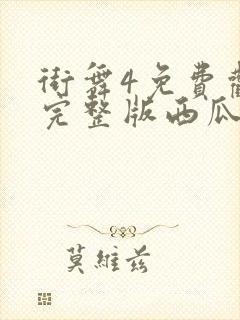 街舞4免費
完整版西瓜
莫維茲